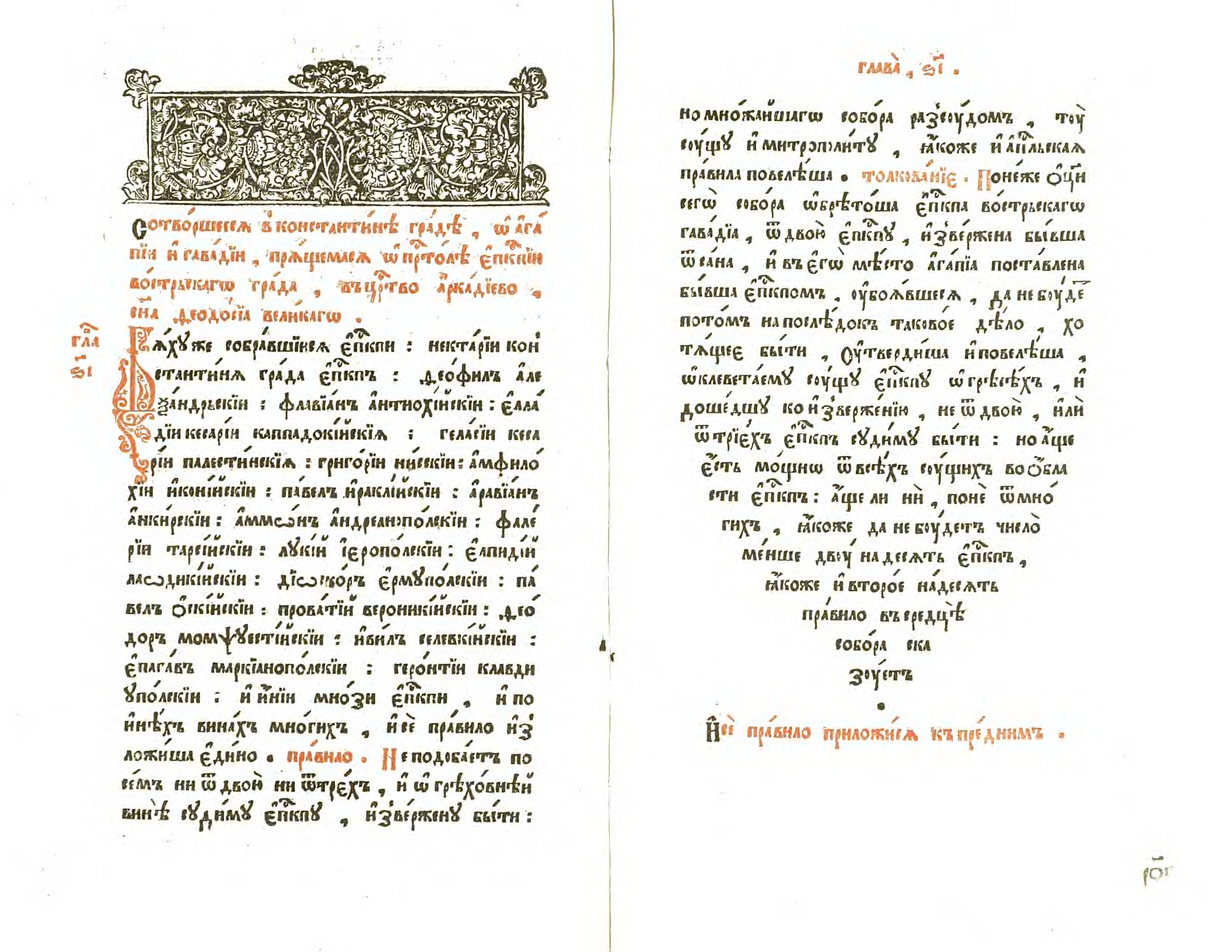 Сотво́ршееся в̾ константи́нѣ гра́дѣ , ѡ҆ а҆га́
пїи и҆ гава́дїи , прѧ́щемася ѡ҆ прⷭ҇то́лѣ є҆пⷭ҇кпїи
во́стрьскагѡ гра́да , въ црⷭ҇тво а҆рка́дїево ,
сн҃а ѳеодо́сїа вели́кагѡ .
гла̀ ѕ҃і
Бѧ́хуже собра́вшїися є҆пⷭ҇кпи : некта́рїи кон̾
стантиня гра́да є҆пⷭ҇кпъ : ѳео́филъ але
ѯа́ндрьскїи : флавїа́нъ а҆нтиохі́йскїи : є҆ла́
дїи кесарі́и каппадокі́йскїѧ : гела́сїи кеса
рі́и палести́нскїѧ : григо́рїи ни́сскїи : а҆мфило́
хїи и҆коні́йскїи : па́велъ и҆раклі́йскїи : а҆равїа́нъ
а҆нки́рскїи : а҆ммѡ́нъ а҆ндреанопо́льскїи : фале́
рїи тарсі́йскїи : лꙋкі́й і҆єропо́лскїи : є҆лпиді́й
лаѡдикі́йскїи : дїѡскоръ є҆рмꙋпо́лскїи : па́
велъ ѻ҆скі́йскїи : прова́тїй верони́кїйскїи : ѳео́
доръ момѱꙋесті́йскїи : и҆ви́лъ селевкі́йскїи :
є҆пага́въ маркїанопо́лскїи : геро́нтїи клавди
ꙋпо́лскїи : и҆ и҆ні́и мно́зи є҆пⷭ҇кпи , и҆ по
и҆нѣ́хъ вина́х мно́гихъ , и҆ сѐ пра́вило и҆з̾
ложи́ша є҆ди́но . пра́вило . Не подоба́етъ по
се́мъ ни ѿ двою̀ ни ѿ тре́хъ , и҆ ѡ҆ грѣхо́внѣй
винѣ̀ суди́мꙋ є҆пⷭ҇кпꙋ , и҆з̾ве́рженꙋ бы́ти :
глава̀ , ѕ҃і .
но мно́жайшагѡ собо́ра раз̾сꙋ́домъ , тоу̀
соу́щꙋ и҆ митрополи́тꙋ , ꙗ҆́коже и҆ а҆пⷭ҇льская
пра́вила повелѣ́ша . толкова́нїе . Поне́же ѻ҆ц҃ы
сегѡ̀ собо́ра ѡ҆брѣто́ша є҆пⷭ҇кпа во́стрьскагѡ
гава́дїа , ѿ двою̀ є҆пⷭ҇кпꙋ , и҆з̾ве́ржена бы́вша
ѿ са́на , и҆ въ є҆гѡ̀ мѣ́сто а҆га́пїа поста́влена
бы́вша є҆пⷭ҇кпомъ , оу҆боя́вшеся , да не бꙋ́деⷮ
пото́мъ на послѣ́докъ таково́е дѣ́ло , хо
тѧ́щее бы́ти , Оу҆тверди́ша и҆ повелѣ́ша ,
ѡ҆клевета́емꙋ соу́щꙋ є҆пⷭ҇кпꙋ ѡ҆ грѣсѣ́хъ , и҆
доше́дшꙋ ко и҆з̾верже́нїю , не ѿ двою̀ , и҆лѝ
ѿ трїе́хъ є҆пⷭ҇кпъ суди́мꙋ бы́ти : но а҆́ще
є҆́сть мо́щнѡ ѿ всѣ́хъ соу́щихъ во ѻ҆́бла
сти є҆пⷭ҇кпъ : а҆́ще ли нѝ , понѐ ѿ мно́
гихъ , ꙗ҆́коже да не бꙋ́детъ число̀
ме́нше двоу̀ на́десять є҆пⷭ҇кпъ ,
ꙗ҆́коже и҆ второ́е на́десять
пра́вило въ средцѣ̀
собо́ра ска
зꙋ́етъ
И҆ сѐ пра́вило приложи́ся къ пре́днимъ .